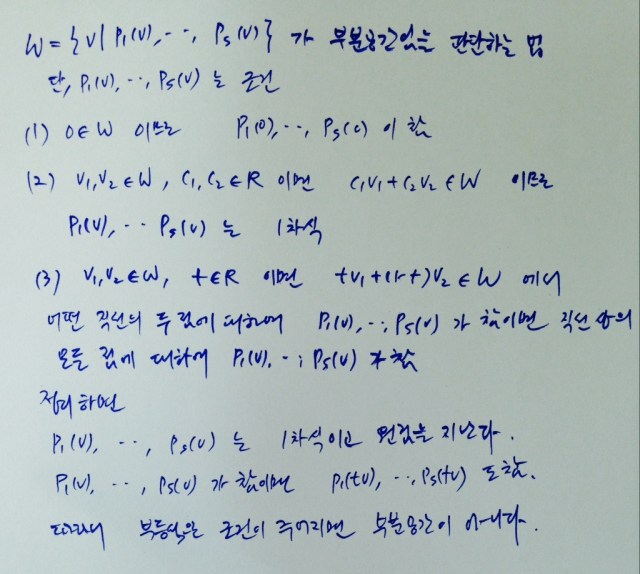 W = {v | P₁(v), ‥, Pₛ(v)} 가 부분공간임을 판단하는 법
단, P₁(v), ‥, Pₛ(v) 는 조건
(1) 0∈W 이므로 P₁(0), ‥, Pₛ(0) 이 참
(2) v₁,v₂∈W, c₁,c₂∈R 이면 c₁v₁+c₂v₂∈W 이므로
P₁(v), ‥ Pₛ(v) 는 1차식
(3) v₁,v₂∈W, t∈R 이면 tv₁+(1-t)v₂∈W 에서
어떤 직선의 두 점에 대하여 P₁(v), ‥, Pₛ(v) 가 참이면 직선 상의
모든 점에 대하여 P₁(v), ‥, Pₛ(v) 가 참
정리하면
P₁(v), ‥, Pₛ(v) 는 1차식이고 원점을 지난다.
P₁(v), ‥, Pₛ(v) 가 참이면 P₁(tv), ‥, Pₛ(tv) 도 참.
따라서 부등식은 조건이 주어지면 부분공간이 아니다.